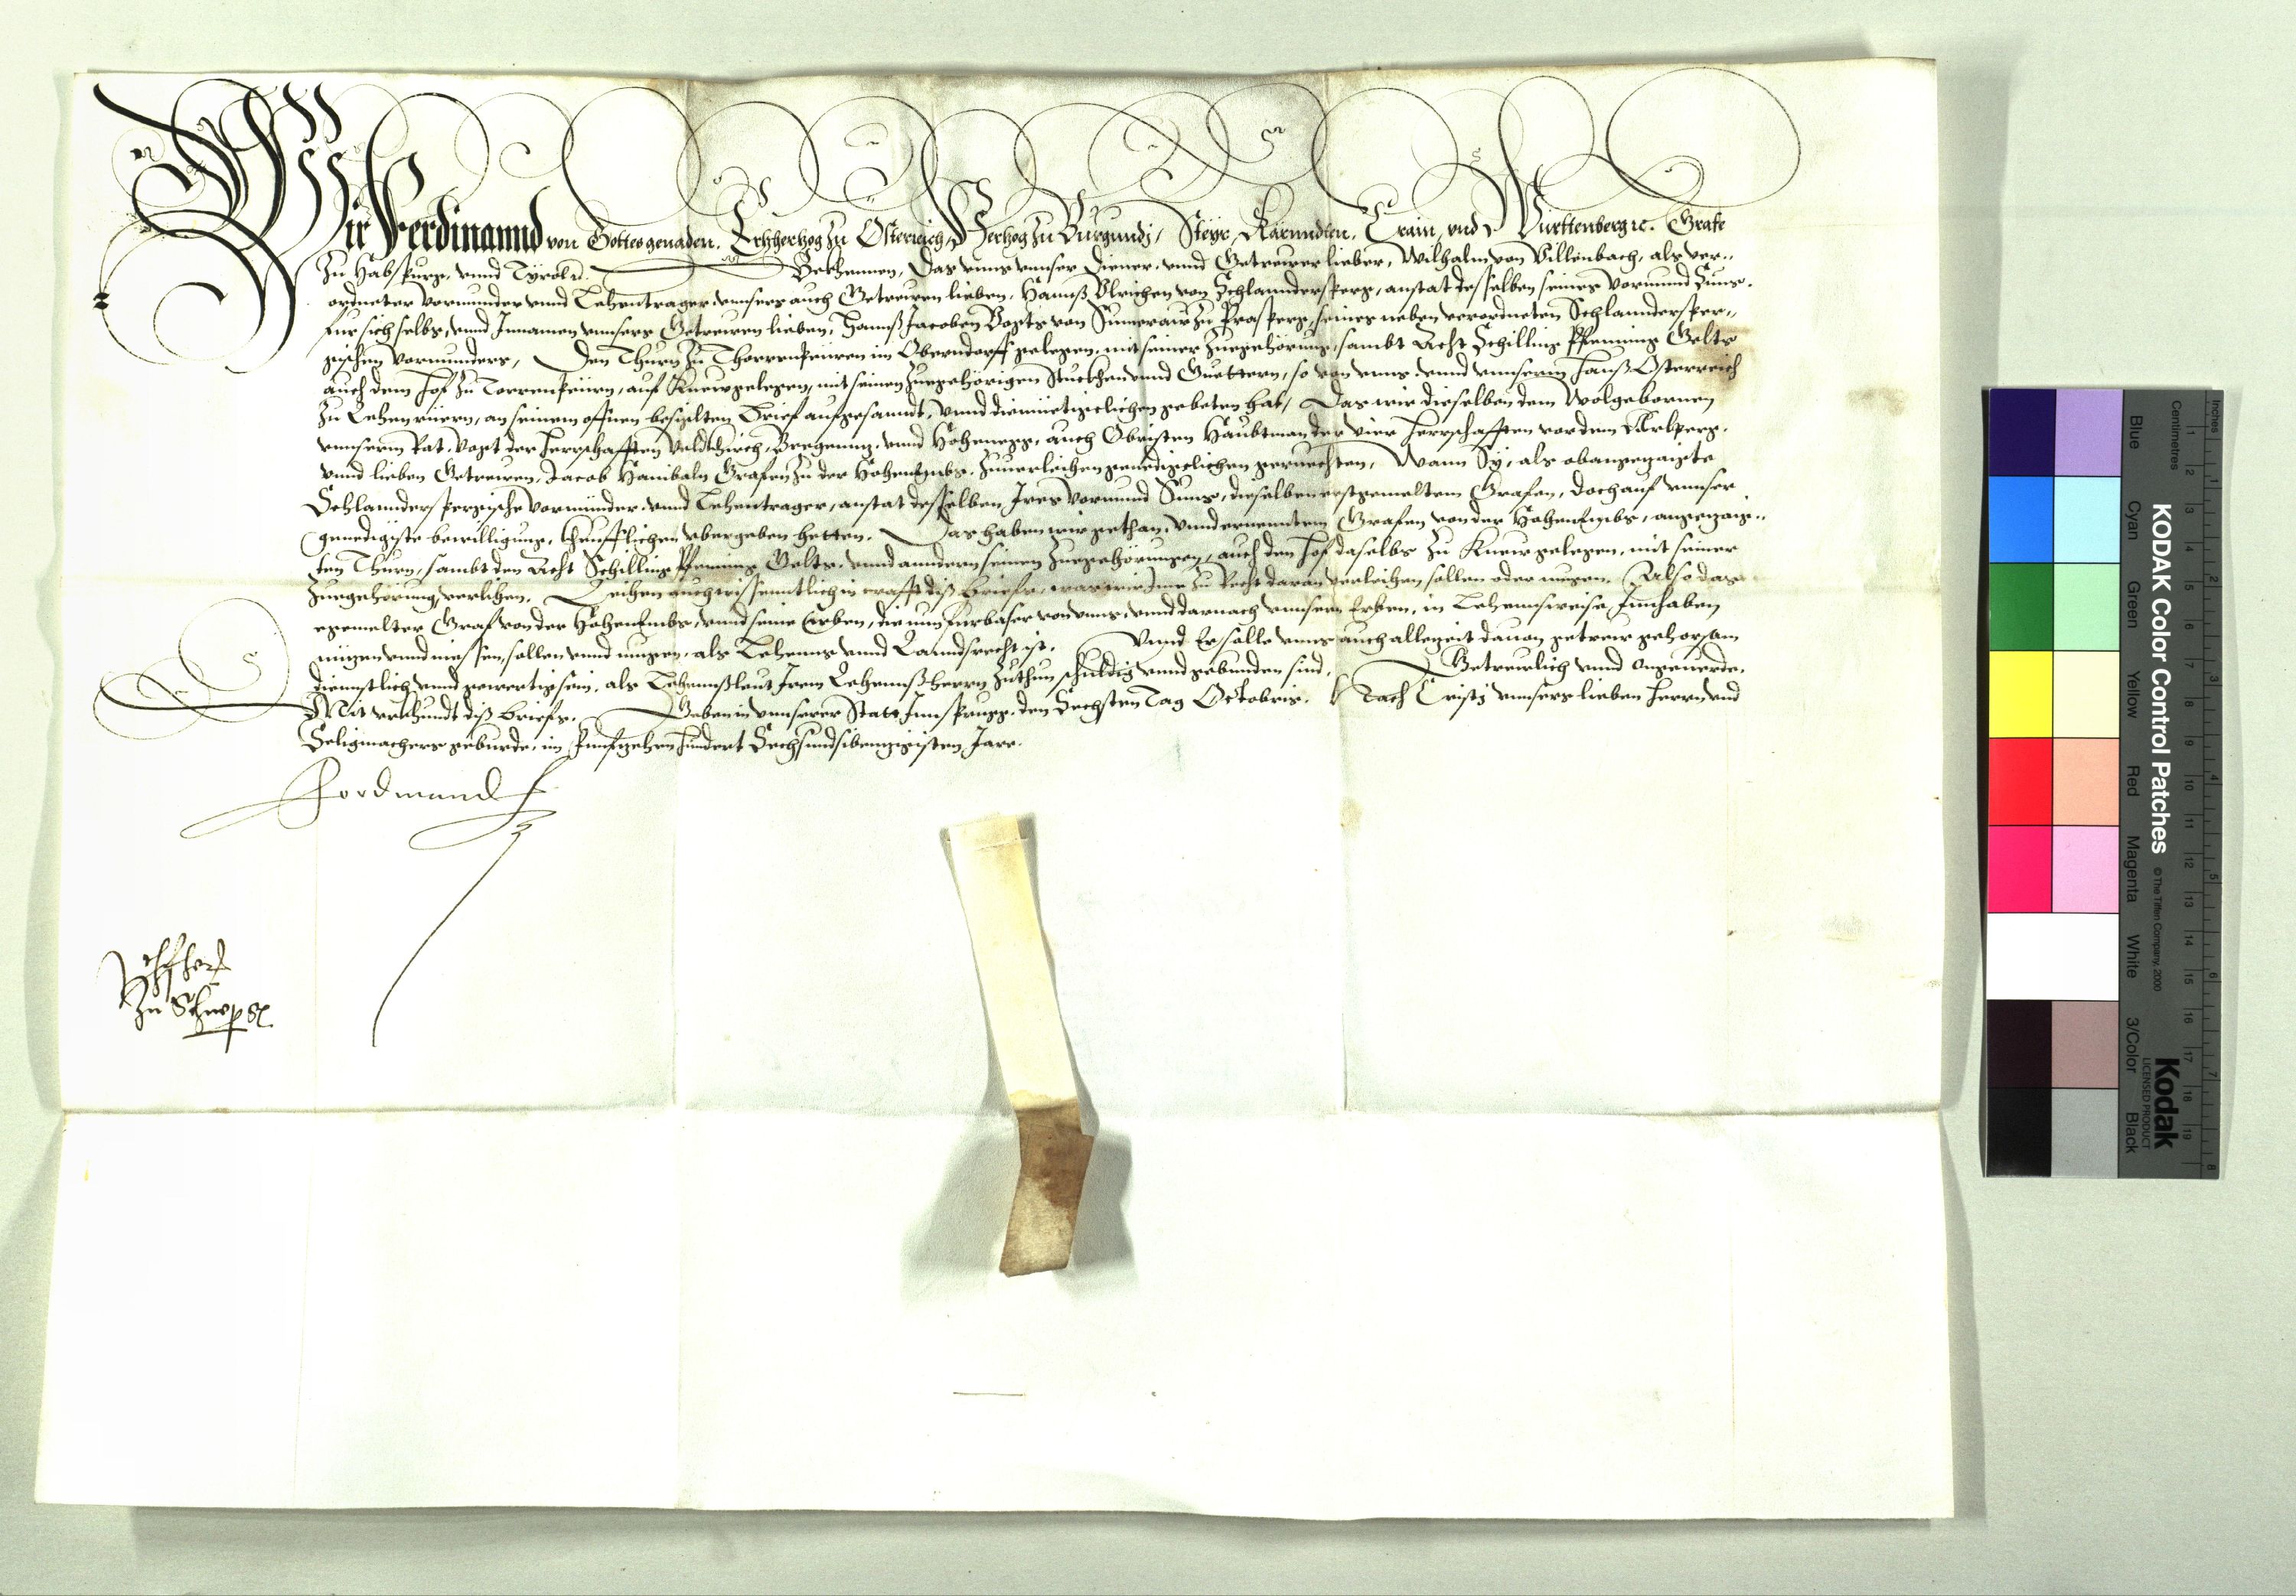 Wir Ferdinannd von Gottes genaden. Ertzhertzog zu Österreich, Hertzog zu Burgundj, Steyr, Kärnndten, Crain, vnd Wirttenberg ꝛc. Grafe
zu Habspurg, vnnd Tyrol ꝛc. Bekhennen, Das vnns vnnser Diener, vnnd Getrewer lieber, Wilhalm von Villenbach, als ver-
ordneter Vormunder vnnd Lehentrager, vnnsers auch Getrewen lieben, Hannß Vlrichen von Schlanndersperg, anstat desselben seines Vormund Suns.
für sich selbs, vnnd Innamen vnnsers Getrewen lieben, Hannß Jacoben Vogts von Sumeraw zu Prasperg, seines neben verordneten Schlandersper-
gischen Vormunders, Den Thurn zu Thorrenpüiren im Oberndorff gelegen, mit seiner zuegehörung, sambt Acht Schilling Pfenning Gelts
auch dem Hof zu Torrenpüirn, auf Knew gelegen, mit seinen zuegehörigen Stuckhen vnnd Guettern, so von vnns, vnnd vnnserm Hauß Österreich
zu Lehen rüern, an seinem offnen besigelten Brief aufgesanndt, vnnd diemüetigclichen gebeten hat, Das wir dieselben dem Wolgebornen
vnnserm Rat, Vogt der Herrschafften Veldtkirch, Bregenntz, vnnd Hohenegg, auch Obristen Haubtman der vier Herrschafften vor dem Arlperg,
vnnd lieben Getrewen, Jacob Hanibaln Grafen zu der Hohenembs, zuuerleihen genedigclichen geruechten, Wann Sy, als obangezaigte
Schlanndersspergische Vormünder, vnnd Lehentrager, anstat desselben Ires Vormund Suns, dieselben erstgemeltem Grafen, doch auf vnnser
genedigiste bewilligung, kheufflichen vbergeben hetten. Das haben wir gethan, vnnd ernenntem Grafen von der Hohenembs, angezaig-
ten Thurn, sambt den Acht Schilling Pfenning Gelts, vnnd anndern seinen zuegehörungen, auch den Hof daselbs zu Knew gelegen, mit seiner
zuegehörung, verlihen. Leihen auch wissenntlich in crafft diß briefs, was wir Ime zu Recht daran verleihen sollen oder mugen. Also das
egemelter Graf von der Hohenembs, vnnd seine Erben, die nun fürbaser von vnns, vnnd darnach vnnsern Erben, in Lehensweise Innhaben
nützen vnnd niessen, sollen vnnd mugen, als Lehenns vnnd Lanndsrecht ist. Vnnd Er solle vnns auch allezeit dauon getrew gehorsam
diennstlich vnnd gewertig sein, als Lehennßleut Irem Lehennßherrn zuthun schuldig vnnd gebunden sind, Getrewlich vnnd ongeuerde.
Mit vrkhundt diß briefs. Geben in vnnserer Statt Innsprugg, den Sechsten Tag Octobris. Nach Cristj vnnsers lieben Herrn, vnd
Seligmachers geburde, im Funfzehenhundert Sechsundsibenzigisten Jare.
Ferdinannd
zu
KODAK Color Control Patches
© The Tiffen Company, 2000
Kodak
LICENSED PRODUCT
Inches
Centimetres
Blue
Cyan
Green
Yellow
Red
Magenta
White
3/Color
Black
1 2 3 4 5 6 7 8
1 2 3 4 5 6 7 8 9 10 11 12 13 14 15 16 17 18 19